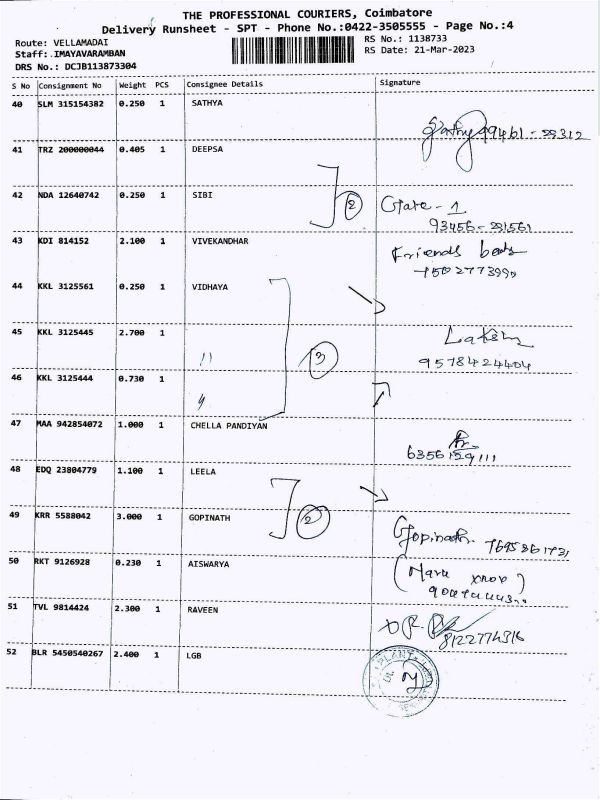 THE PROFESSIONAL COURIERS, Coimbatore
Delivery Runsheet - SPT - Phone No.:0422-3505555 - Page No.:4
Route: VELLAMADAI
RS No.: 1138733
Staff:.IMAYAVARAMBAN
RS Date: 21-Mar-2023
DRS No.: DCJB113873304
S No Consignment No Weight PCS Consignee Details Signature
40 SLM 315154382 0.250 1 SATHYA
41 TRZ 200000044 0.405 1 DEEPSA
2
42 NDA 12640742 0.250 1 SIBI Gate - 1
43 KDI 814152 2.100 1 VIVEKANDHAR Friends
44 KKL 3125561 0.250 1 VIDHAYA
45 KKL 3125445 2.700 1
11
3
9578424404
46 KKL 3125444 0.730 1
47 MAA 942854072 1.000 1 CHELLA PANDIYAN
6356129111
48 EDQ 23804779 1.100 1 LEELA
49 KRR 5588042 3.000 1 GOPINATH 2 Gopinath.
50 RKT 9126928 0.230 1 AISWARYA
51 TVL 9814424 2.300 1 RAVEEN
8122774316
52 BLR 5450540267 2.400 1 LGB